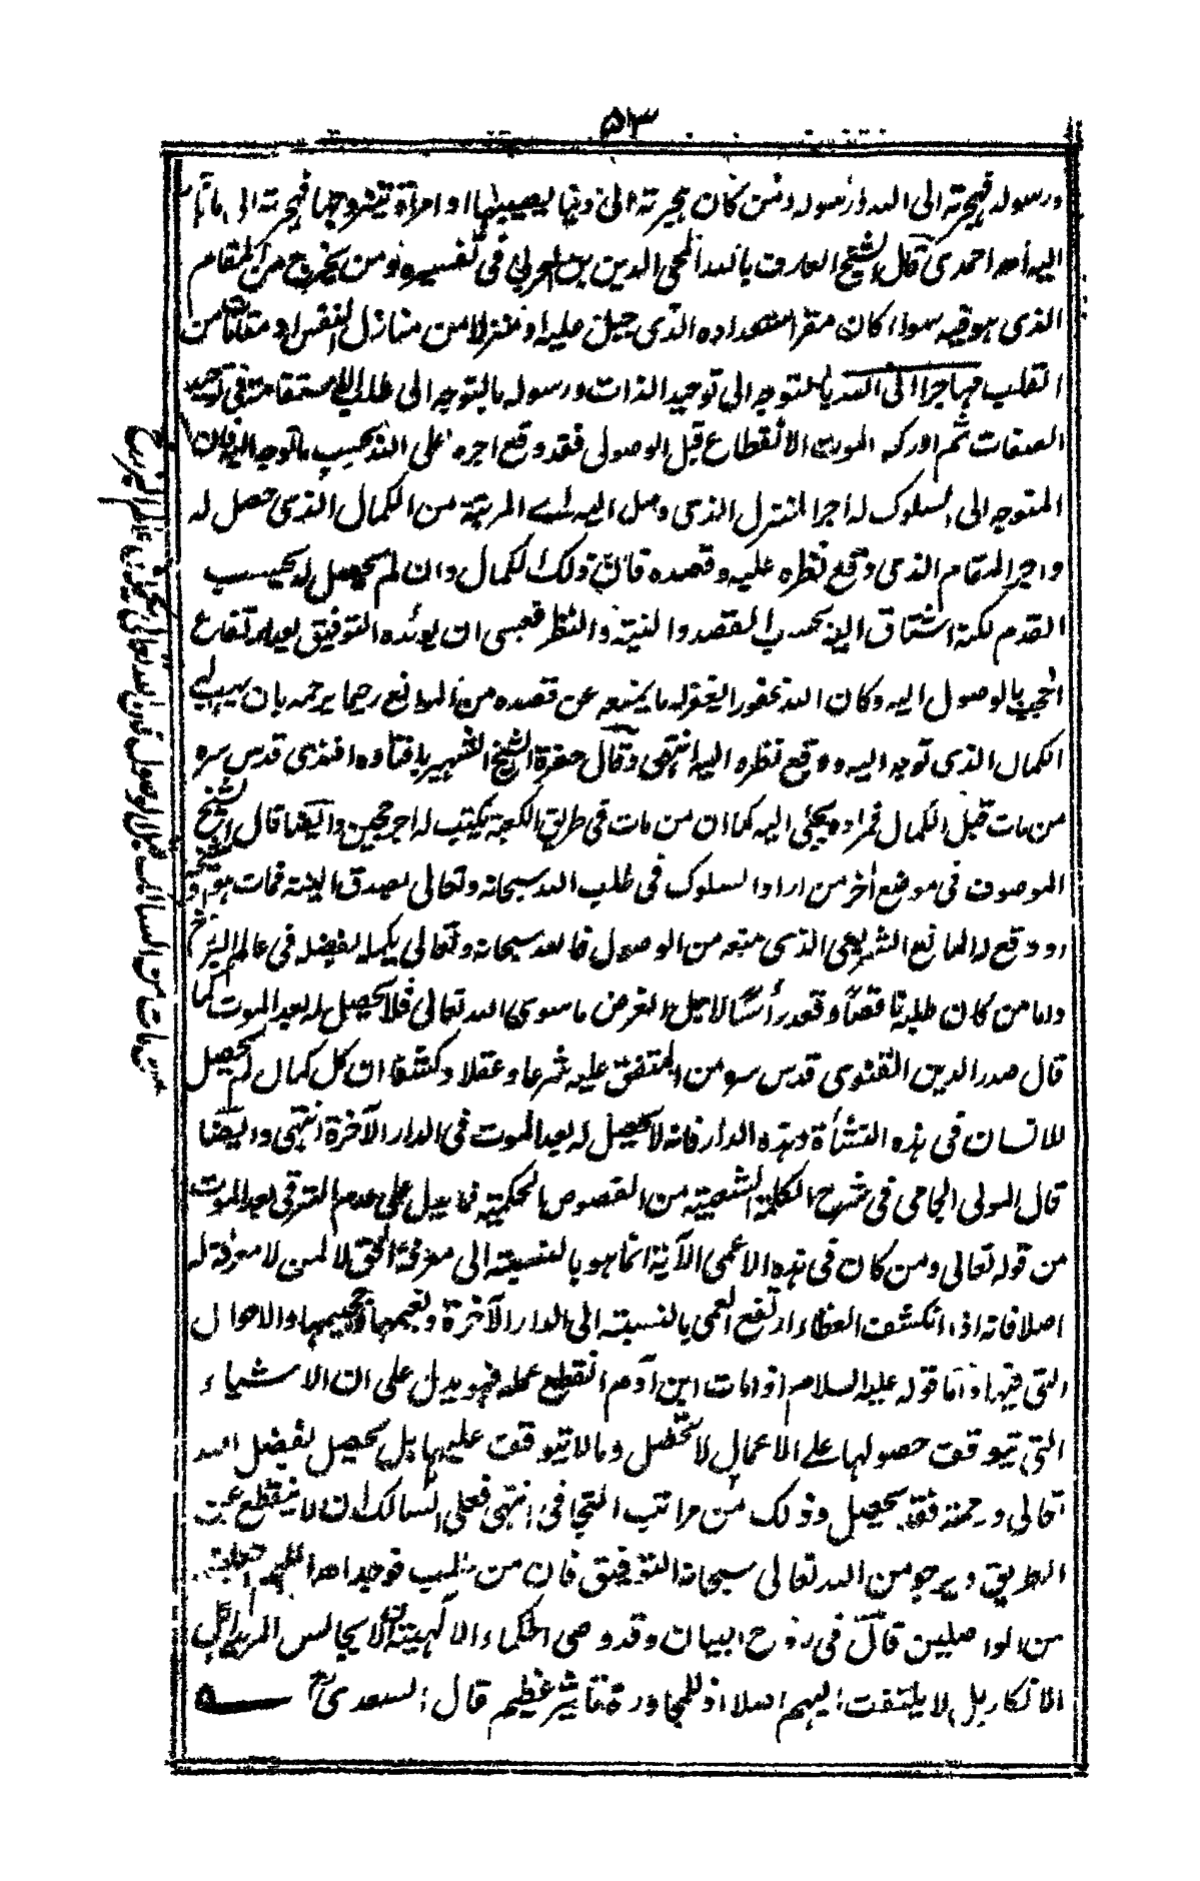 ۵۳
ورسوله فهجرته الى الله ورسوله ومن كان هجرته الى دنيا يصيبها او امرأة يتزوجها فهجرته الى ما هاجر
اليه احمدى قال الشيخ العارف بالله المحى الدين بن العربى فى تفسيره ومن يخرج من المقام
الذى هو فيه سواء كان مقر استعداده الذى جبل عليه او منزلا من منازل النفس او مقاما من
القلب مهاجرا الى الله بالتوجه الى توحيد الذات ورسوله بالتوجه الى طلب الاستقامة فى توحيد
الصفات ثم ادركه الموت الانقطاع قبل الوصول فقد وقع اجره على الله بحسب ما توجه اليه فان
المتوجه الى السلوك له اجر المنزل الذى وصل اليه اى المرتبة من الكمال الذى حصل له
واجر المقام الذى وقع نظره عليه وقصده فان ذلك الكمال وان لم يحصل له بحسب
القدم لكنه اشتاق اليه بحسب القصد والنية والنظر فعسى ان يؤيده التوفيق بعد ارتفاع
الحجب بالوصول اليه وكان الله غفورا يغفر له ما يمنعه عن قصده من الموانع رحيما يرحمه بان يهب له
الكمال الذى توجه اليه ووقع نظره اليه انتهى وقال حضرة الشيخ الشهير بافتاده افندى قدس سره
من مات قبل الكمال فمراده يجئ اليه كما ان من مات فى طريق الكعبة يكتب له اجر حجين وايضا قال الشيخ
الموصوف فى موضع أخر من اراد السلوك فى طلب الله سبحانه وتعالى بصدق النية فمات هو
او وقع له المانع الشرعى الذى منعه من الوصول فالله سبحانه وتعالى يكمله بفضله فى عالم البرزخ
واما من كان طلبه ناقصاً وقعد رأسًا لاجل الغرض ما سوى الله تعالى فلا يحصل له بعد الموت كما
قال صدر الدين القنوى قدس سره من المتفق عليه شرعا وعقلا وكشفا ان كل كمال لم يحصل
للانسان فى هذه النشأة وهذه الدار فانه لا يحصل له بعد الموت فى الدار الآخرة انتهى وايضا
قال المولى الجامى فى شرح الكلمة الشعيبية من الفصوص الحكمية فما يدل على عدم الترقى بعد الموت
من قوله تعالى ومن كان فى هذه الاعمى الآية انما هو بالنسبة الى معرفة الحق لا لمن لا معرفة له
اصلا فانه اذا انكشف الغطاء ارتفع العمى بالنسبة الى الدار الآخرة ونعيمها وجحيمها والاحوال
التى فيها واما قوله عليه السلام اذا مات ابن آدم انقطع عمله فهو يدل على ان الاشياء
التى يتوقف حصولها على الاعمال لا تحصل وما لا يتوقف عليها بل يحصل بفضل الله
تعالى ورحمته فقد يحصل وذلك من مراتب التجافى انتهى فعلى السالك ان لا ينقطع عن
الطريق ويرجو من الله تعالى سبحانه التوفيق فان من طلب فوجد
من الواصلين قال فى روح البيان وقد وصى الحكماء الالهية ان لا يجالس المريد اهل
الانكار بل لا يلتفت اليهم اصلا اذ للمجاورة تاثير عظيم قال السعدى
من مات من السالك قبل الوصول فان الله تعالى